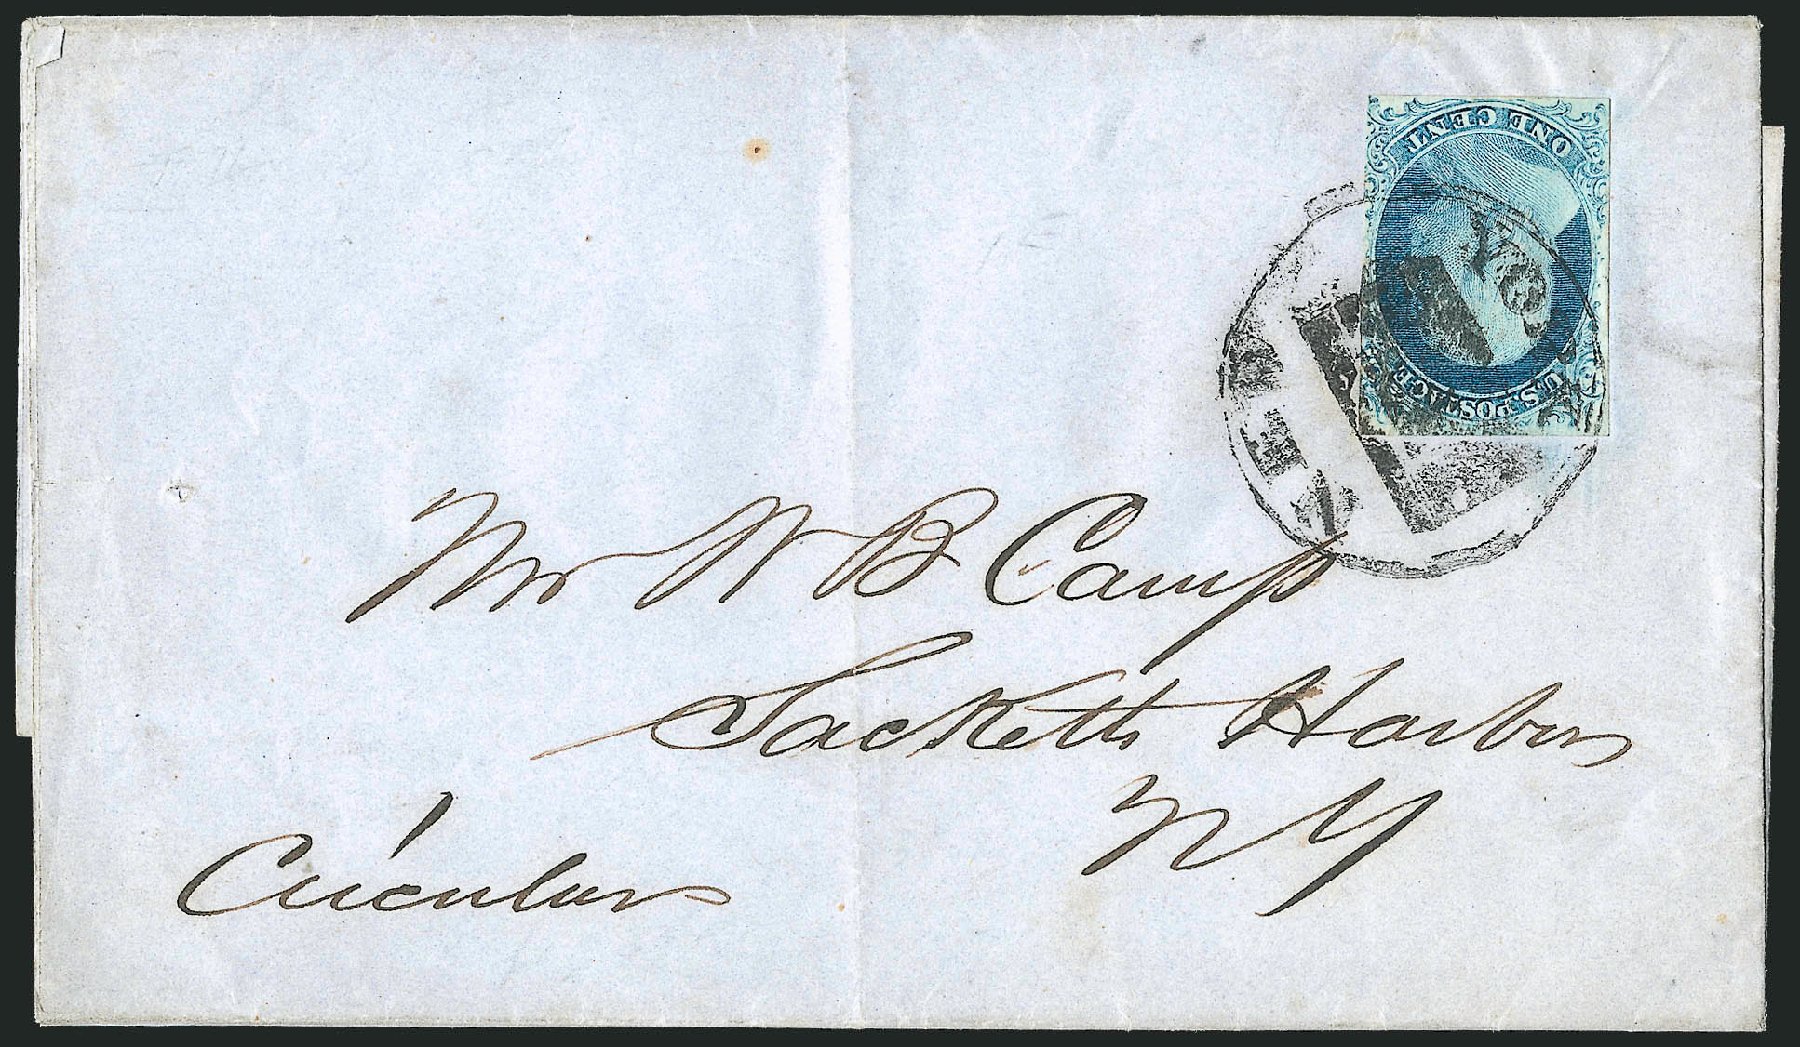 ONE CENT
U.S. POSTAGE
NEW YORK
Mr W B Camp
Sacketts Harbor
N Y
Circular